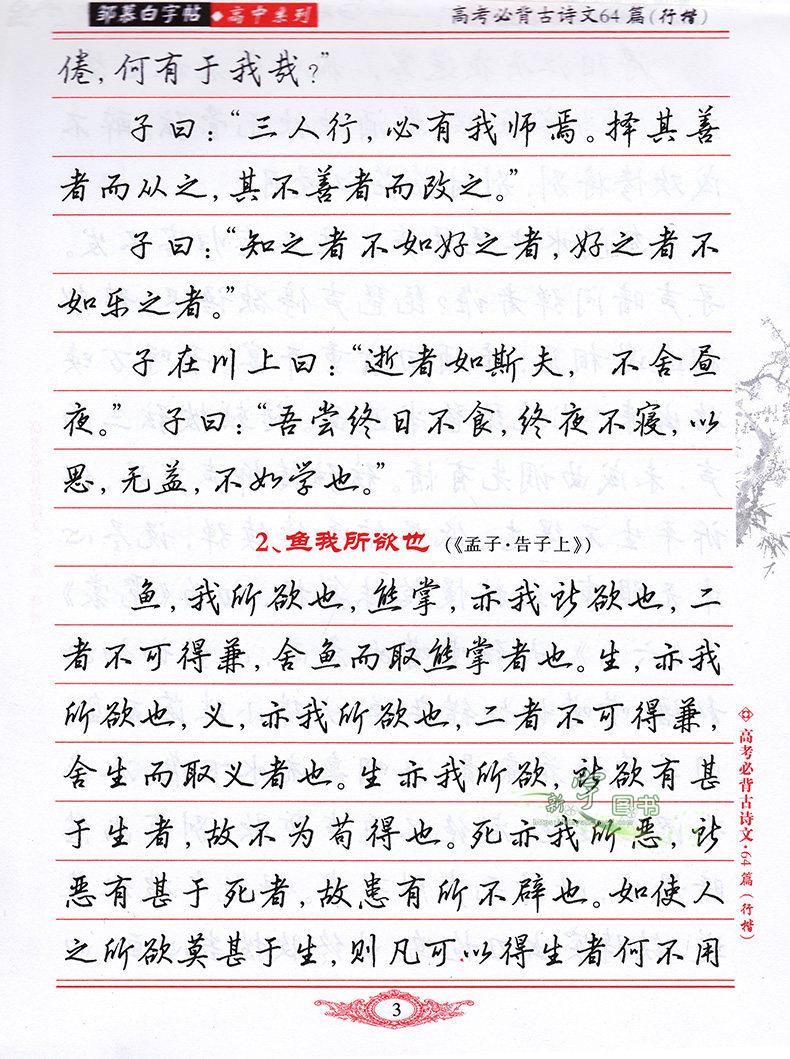 邹慕白字帖◆高中系列
高考必背古诗文64篇(行楷)
倦，何有于我哉？”
子曰：“三人行，必有我师焉。择其善
者而从之，其不善者而改之。”
子曰：“知之者不如好之者，好之者不
如乐之者。”
子在川上曰：“逝者如斯夫，不舍昼
夜。” 子曰：“吾尝终日不食，终夜不寝，以
思，无益，不如学也。”
2、鱼我所欲也 (《孟子·告子上》)
鱼，我所欲也，熊掌，亦我所欲也，二
者不可得兼，舍鱼而取熊掌者也。生，亦我
所欲也，义，亦我所欲也，二者不可得兼，
舍生而取义者也。生亦我所欲，所欲有甚
于生者，故不为苟得也。死亦我所恶，所
恶有甚于死者，故患有所不辟也。如使人
之所欲莫甚于生，则凡可以得生者何不用
高考必背古诗文·64篇(行楷)
3